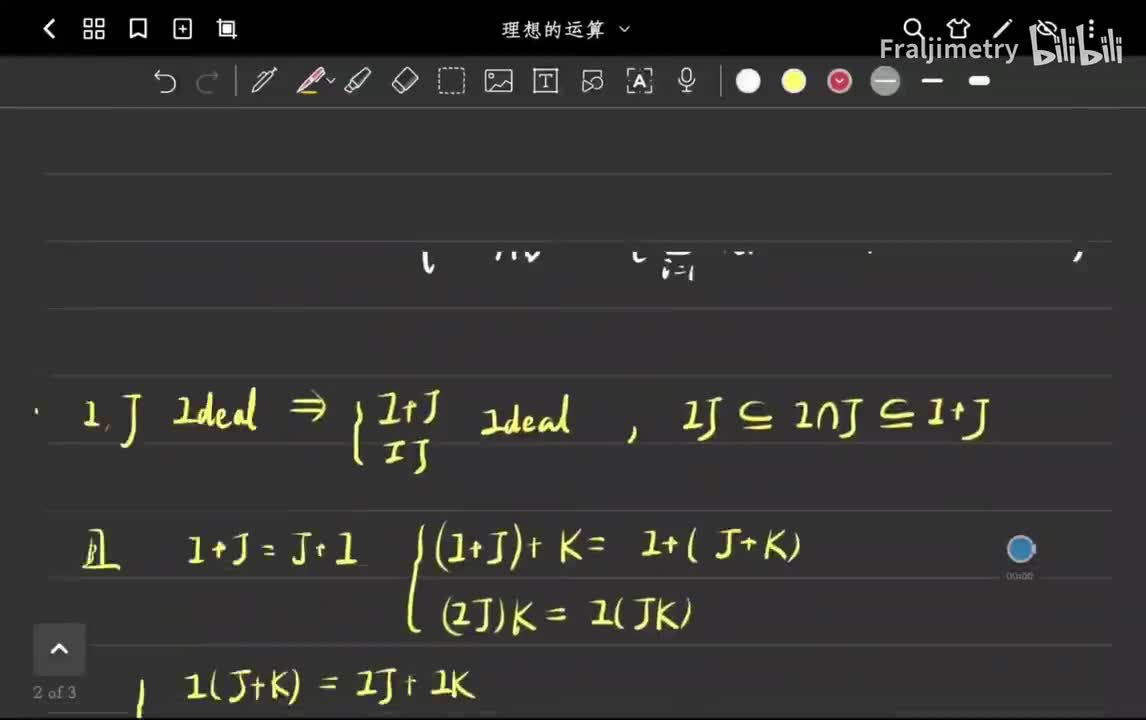 理想的运算
Fraljimetry bilibili
i=1
I, J Ideal ⇒ { I+J
IJ Ideal , IJ ⊆ I∩J ⊆ I+J
且 I+J = J+I { (I+J)+K = I+(J+K)
(IJ)K = I(JK)
00:00
I(J+K) = IJ+IK
2 of 3